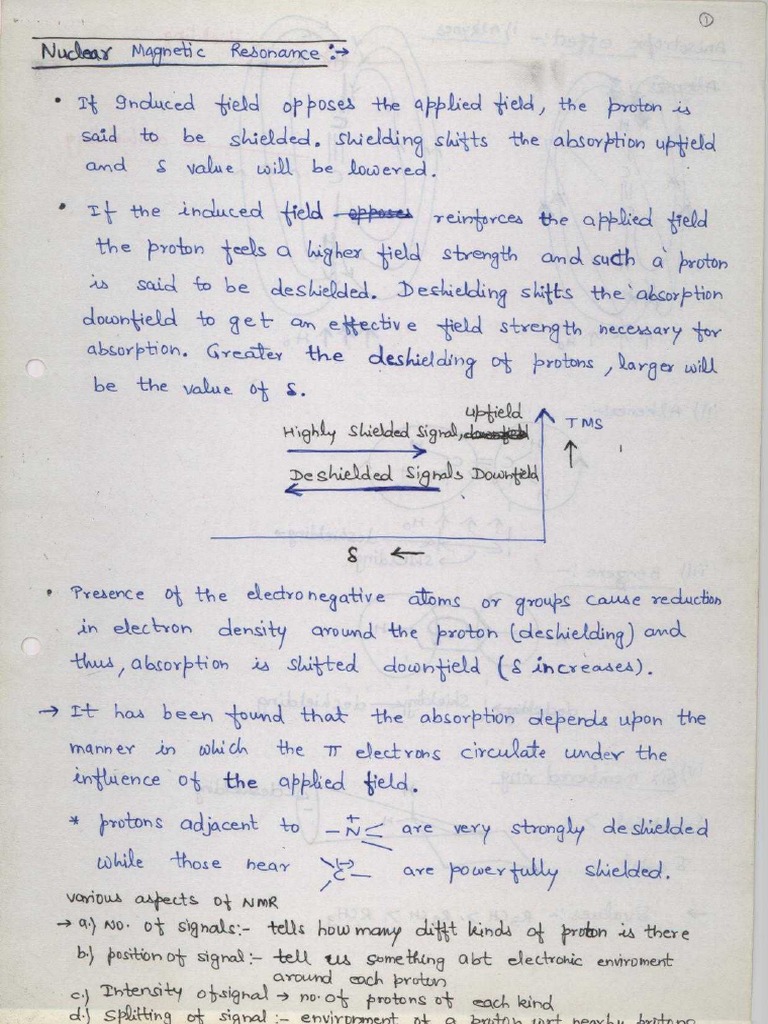 ①
Nuclear Magnetic Resonance :→
• If Induced field opposes the applied field, the proton is
said to be shielded. Shielding shifts the absorption upfield
and δ value will be lowered.
• If the induced field opposes reinforces the applied field
the proton feels a higher field strength and such a proton
is said to be deshielded. Deshielding shifts the absorption
downfield to get an effective field strength necessary for
absorption. Greater the deshielding of protons, larger will
be the value of δ.
upfield
Highly shielded signal, downfield
TMS
Deshielded Signals Downfield
δ ←
• Presence of the electronegative atoms or groups cause reduction
in electron density around the proton (deshielding) and
thus, absorption is shifted downfield (δ increases).
→ It has been found that the absorption depends upon the
manner in which the π electrons circulate under the
influence of the applied field.
* protons adjacent to -N+ are very strongly deshielded
while those near C(-) are powerfully shielded.
various aspects of NMR
→ a.) No. of signals:- tells how many difft kinds of proton is there
b.) position of signal:- tell us something abt electronic enviroment
around each proton
c.) Intensity of signal → no. of protons of each kind
d.) Splitting of signal:- environment of a proton wrt nearby protons